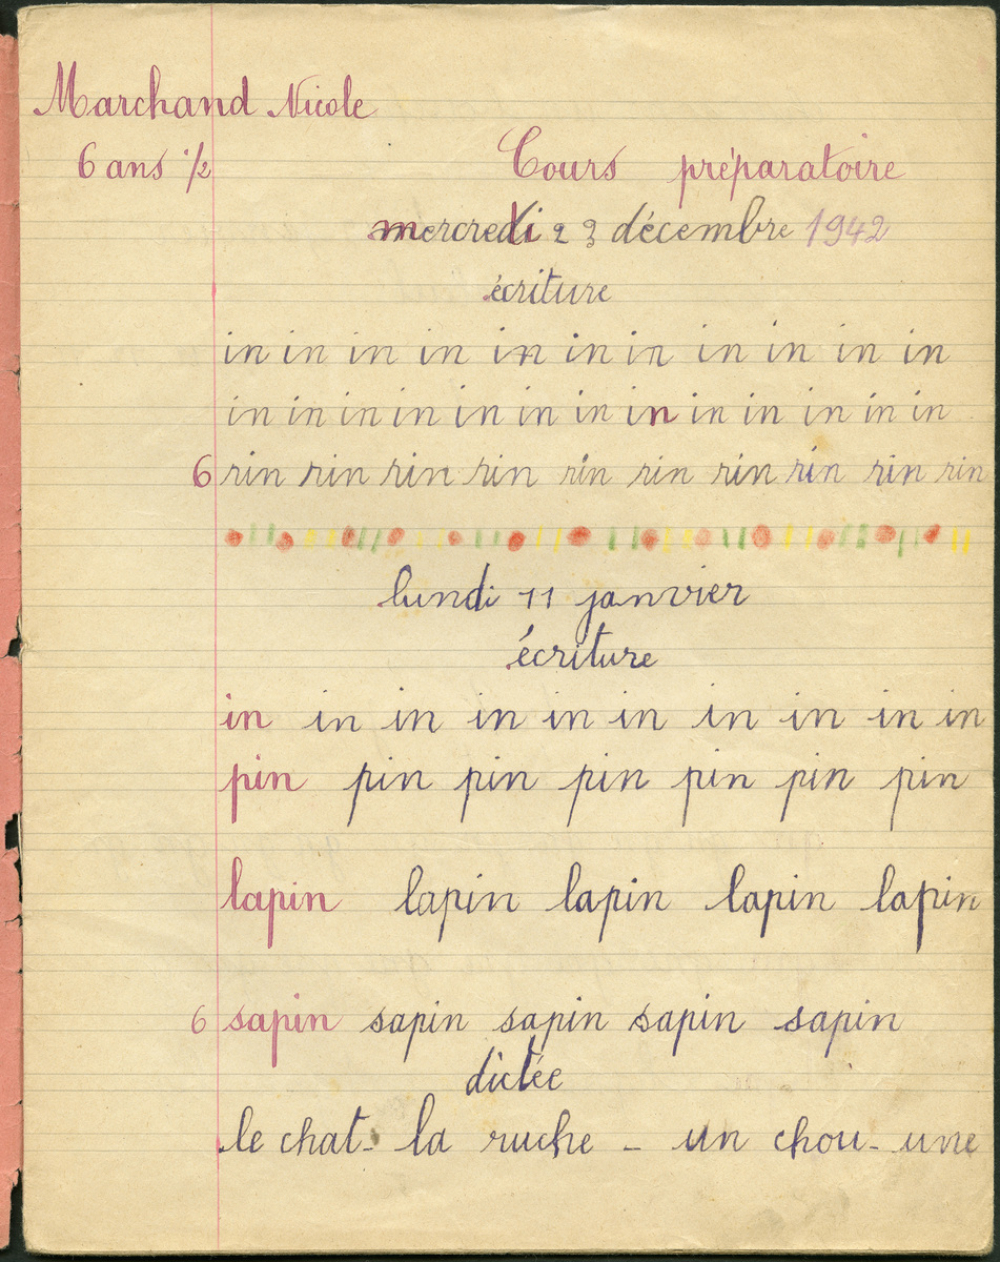 Marchand Nicole
6 ans 1/2
Cours préparatoire
mercredi 23 décembre 1942
écriture
in in in in in in in in in in in
in in in in in in in in in in in in in
6 rin rin rin rin rin rin rin rin rin rin
lundi 11 janvier
écriture
in in in in in in in in in in
pin pin pin pin pin pin pin
lapin lapin lapin lapin lapin
6 sapin sapin sapin sapin sapin
dictée
le chat - la ruche - un chou - une